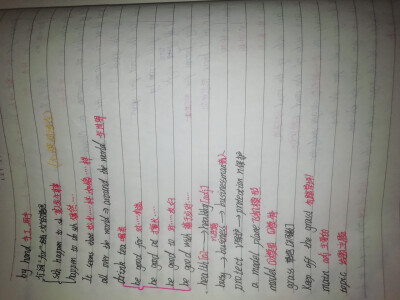 by hand 手工,用手
sth happen to sb 某人发生某事
happen to do sth 碰巧
It seems that 似乎,好像
all over the world = around the world 全世界
drink tea 喝茶
be good for 对…有益
be good at 擅长…
be good to 对…友好
be good with 善于应对…
health [n] → healthy [adj]
busy → business → businessman 商人
protect v保护 → protection n保护
a model plane 飞机模型
model
grass 草
keep off the grass 勿踏草坪
main adj 主要的
topic 话题,主题